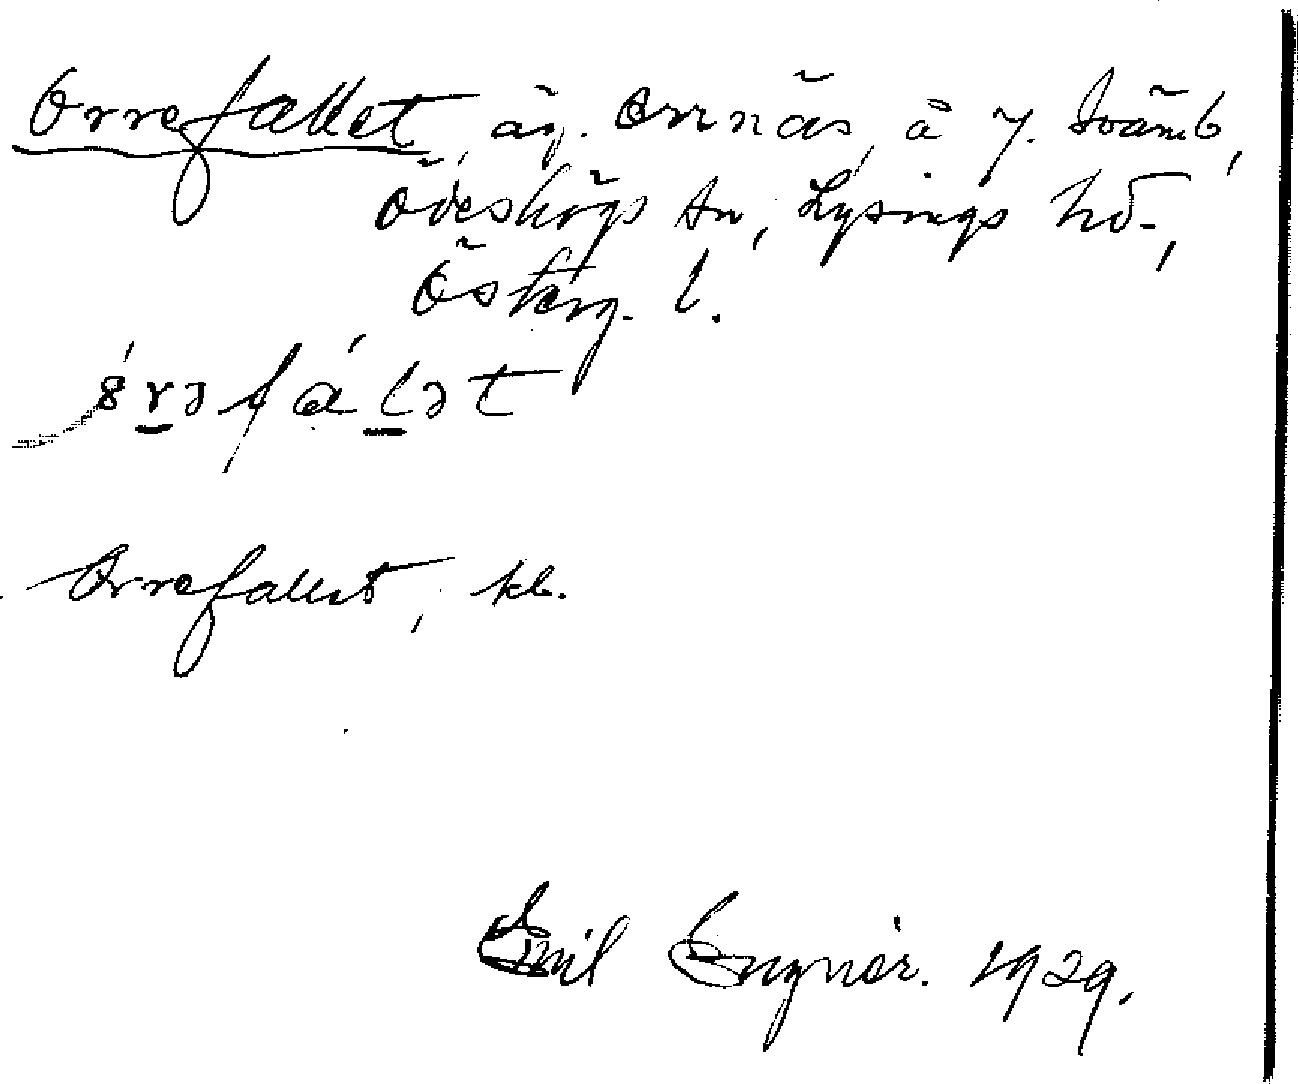 Orrefallet, äg. Orrnäs, å 7. Svämb,
Ödeshögs sn, Lysings hd,
Österg. l.
Orrefallet, kb.
Emil Engnér. 1929.